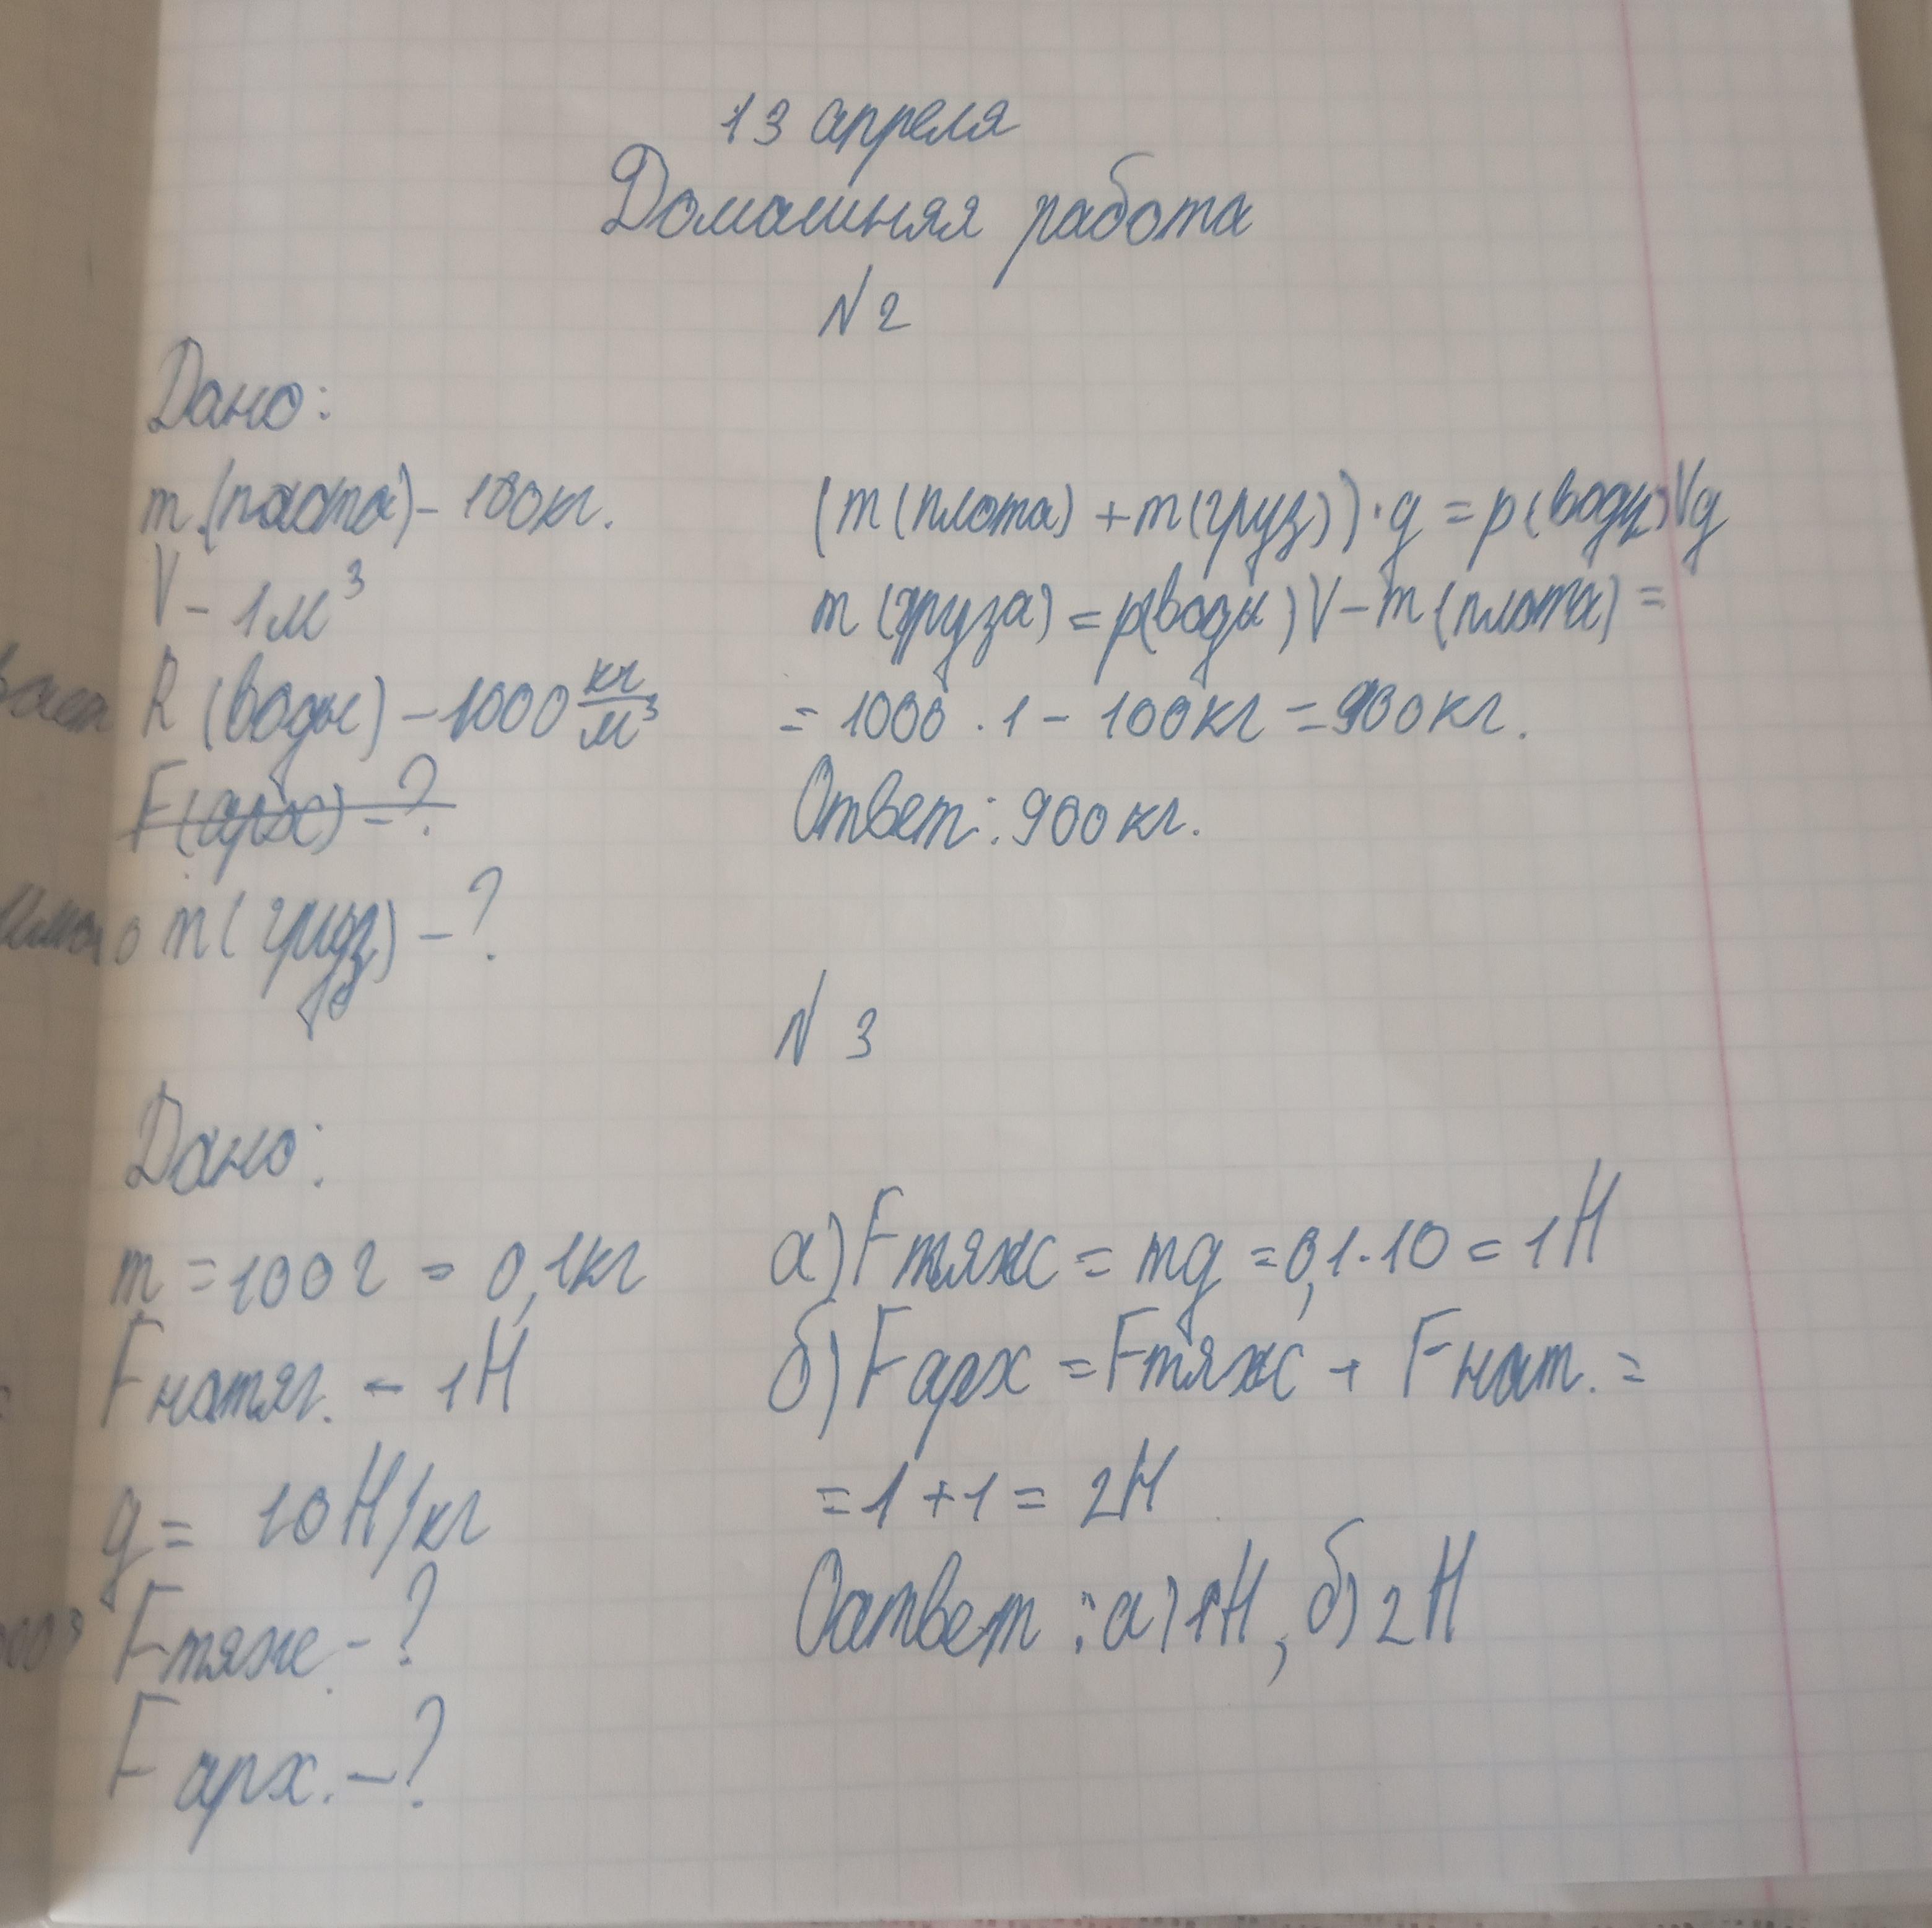 13 апреля
Домашняя работа
N 2
Дано:
m (плота) - 100 кг.
V - 1 м³
R (воды) - 1000 кг/м³
F(арх) - ?
m (груз) - ?
(m (плота) + m (груз)) · g = p (воды) Vg
m (груза) = p(воды) V - m (плота) =
= 1000 · 1 - 100 кг = 900 кг.
Ответ: 900 кг.
N 3
Дано:
m = 100 г = 0,1 кг
F натяг. - 1 Н
g = 10 Н/кг
F тяж - ?
F арх. - ?
а) F тяж = mg = 0,1 · 10 = 1 Н
б) F арх = F тяж + F нат. =
= 1 + 1 = 2 Н
Оатвет : а) 1 Н, б) 2 Н